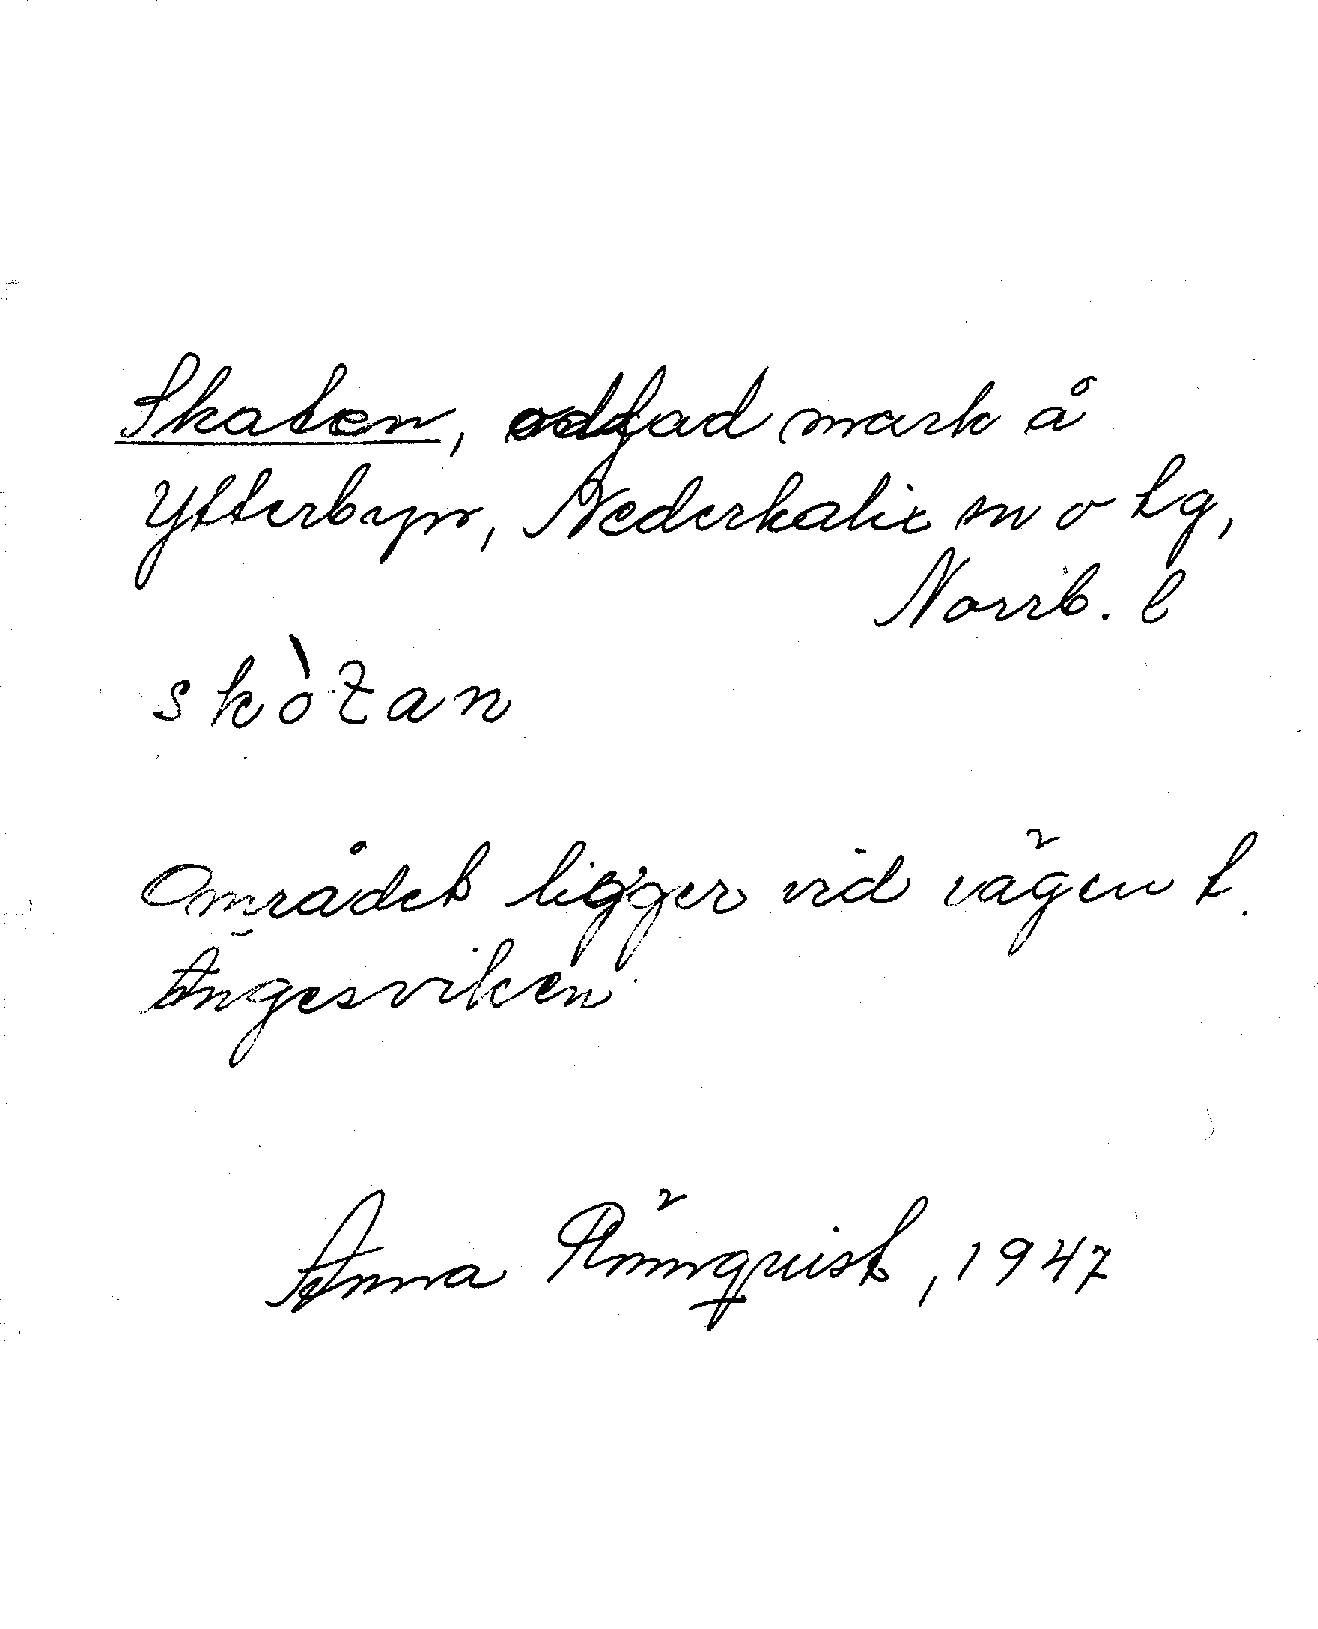 Skaten, odlad mark å
Ytterbyn, Nederkalix sn o tg,
Norrb. l
skòtan
Området ligger vid vägen t.
Ängesviken
Anna Rönnquist, 1947